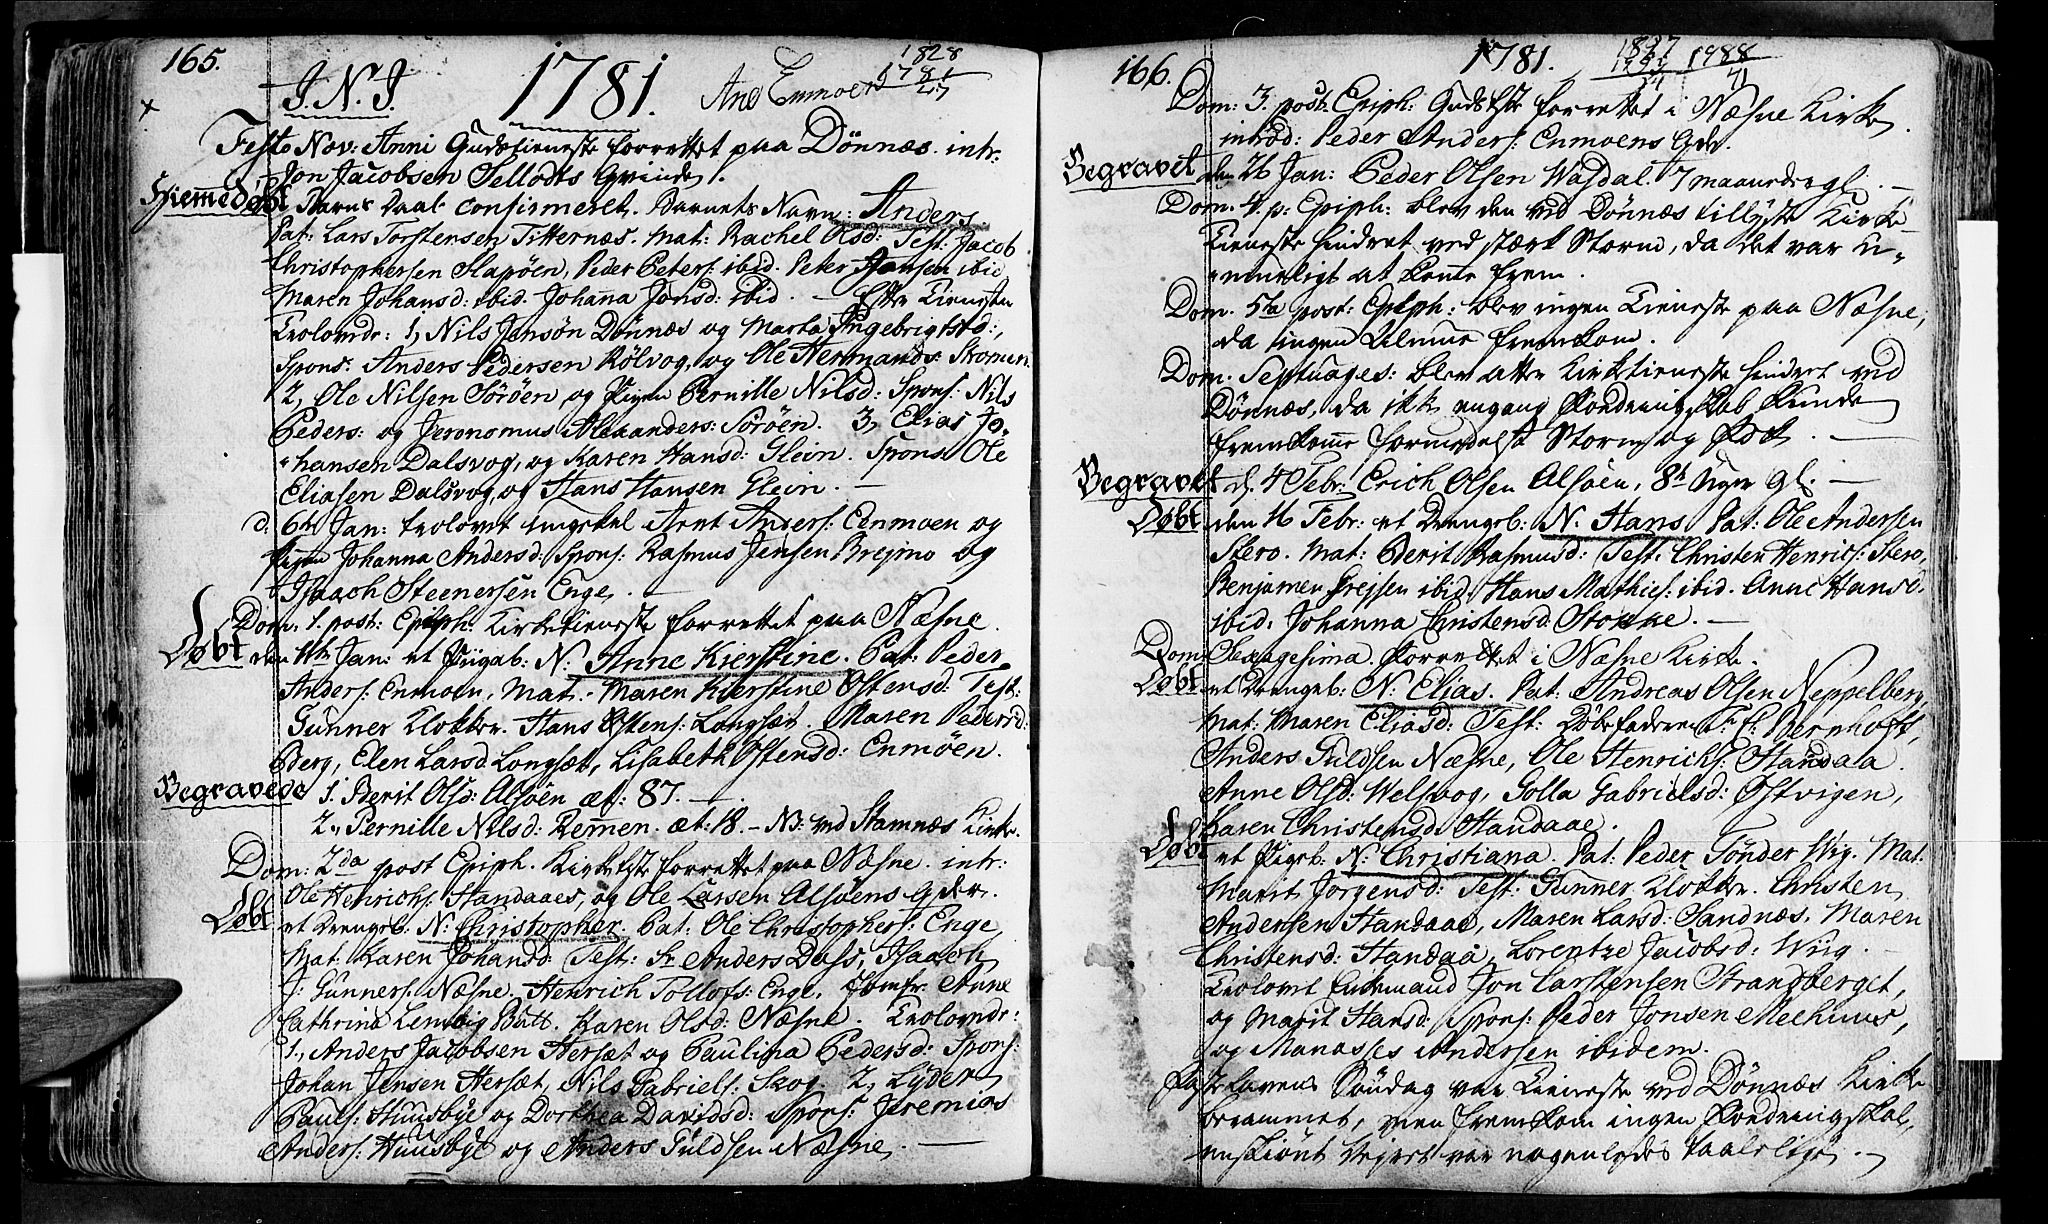 165.
J. N. J. 1781. And Enmoe 1828
1781
47
Festo Nov: Anni Gudstieneste forrettet paa Dönnæs. intr.
Jon Jacobsen Sellodts Qvinde.
Hiemedøbt Barns Daab confirmeret. Barnets Navn: Anders
Pat: Lars Torstensen Titternæs. Mat: Rachel Olsd: Test: Jacob
Christophersen Slapöen, Peder Peters: ibid. Peter Hansen ibid
Maren Johansd: ibid. Johanna Jonsd: ibid. — Efter Tienesten
Trolovede: 1, Nils Jensön Dönnæs og Marta Ingebrigtsd:
Spons: Anders Pedersen Rölvog, og Ole Hermands: Skomum.
2, Ole Nilsen Söröen, og Pigen Pernille Nilsd: Spons: Nils
Peders: og Jeronomus Alexanders: Söröen. 3, Elias Jo-
hansen Dalsvog, og Karen Hansd: Glein. Spons: Ole
Eliasen Dalsvog, og Hans Hansen Glein. —
d. 6te Jan: trolovet ungkarl Arnt Anders: Enmoen og
Pigen Johanna Andersd: Spons: Rasmus Jensen Brejmo og
Isaach Steenersen Enge. —
Dom. 1. post: Epiph: Kirketieneste forrettet paa Næsne.
Døbt den Jan: et Pigeb: N: Anne Kierstine. Pat: Peder
Anders: Enmoen, Mat. Maren Kierstine Ostensd: Test:
Gunner Klokker. Hans Ostens: Langsæt. Maren Pedersd:
Berg, Elen Larsd Longsæt, Lisabeth Ostensd: Enmöen.
Begravede 1. Berit Olsd: Alsöen æt: 87. —
2., Pernille Nilsd: Remmen. æt: 18. — NB: ved Stamnæs Kirke.
Dom: 2da post Epiph. Kirketste forrettet paa Næsne. intr:
Ole Henrichs: Standaaes, og Ole Larsen Alsöens Qder.
Døbt et Drengeb. N: Christopher. Pat: Ole Christophers: Enge,
Mat: Karen Johansd: Test: Hr Anders Dass, Isaach
J: Gunners: Næsne. Henrich Tollofs: Enge. Jomfr: Anne
Cathrina Lentvig Bütt. Karen Olsd: Næsne. Trolovede:
1., Anders Jacobsen Hersæt og Paulina Pedersd: Spons:
Johan Jensen Hersæt, Nils Gabriels: Skog. 2, Lyder
Pauls: Huusbye og Dorthea Davidsd: Spons: Jeremias
Anders: Huusbye og Anders Tuldsen Næsne. —
166. 1781. 1827 1988
71
Dom: 3. post: Epiph: Gudstste forrettet i Næsne Kirke.
introd: Peder Anders: Enmoens Qde.
Begravet den 26 Jan: Peder Olsen Wasdal. 7 maaneder gl. —
Dom: 4. p: Epiph: blev den ved Dönnæs tillyste Kirke-
Tieneste hindret ved stærk Storm, da det var U-
mueligt at komme frem.
Dom. 5ta post: Epiph: blev ingen Tieneste paa Næsne,
da ingen Almue fremkom.
Dom. Septuages: blev atter Kirketieneste hindret ved
Dönnæs, da ikke engang Bondringskab kunde
fremkomme formedelst Storm og Fok. —
Begravet d. 4 Febr: Erich Olsen Alsöen, 8te Uger gl. —
Døbt den 16 Febr: et Drengeb: N. Hans. Pat: Ole Andersen
Stero. Mat: Berit Rasmusd: Test: Christen Henrics: Stero,
Benjamen Grejsen ibid. Hans Mathies: ibid. Anne Hansd.
ibid. Johanna Christensd: Stokke. —
Dom: Sexagesima. forrettet i Næsne Kirke.
Døbt et Drengeb: N: Elias. Pat: Andreas Olsen Neppelberg,
Mat: Maren Eliasd: Test: Döbefaderen Hr fl: Bernhoft,
Anders Tuldsen Næsne, Ole Henrichs: Standaa.
Anne Olsd: Welsvog, Golla Gabrielsd: Østvigen,
Karen Christensd. Standaae.
Døbt et Pigeb: N: Christiana. Pat: Peder Tönder Wig. Mat:
Marit Jörgensd: Test: Gunner Klokker. Christen
Andersen Standaae, Maren Larsd: Sandnæs. Maren
Christensd: Standaa, Lorentze Jacobsd: Wiig. —
Trolovet Enkemand Jon Carstensen Strandberget,
og Marit Hansd: Spons: Peder Jonsen Mechuus,
og Manasses Andersen ibidem.
Fastelavens Söndag var Tieneste ved Dönnæs Kirke
berammet, men fremkom ingen Bondringskal,
enskiönt Vejret var nogenledes taaleligt. —